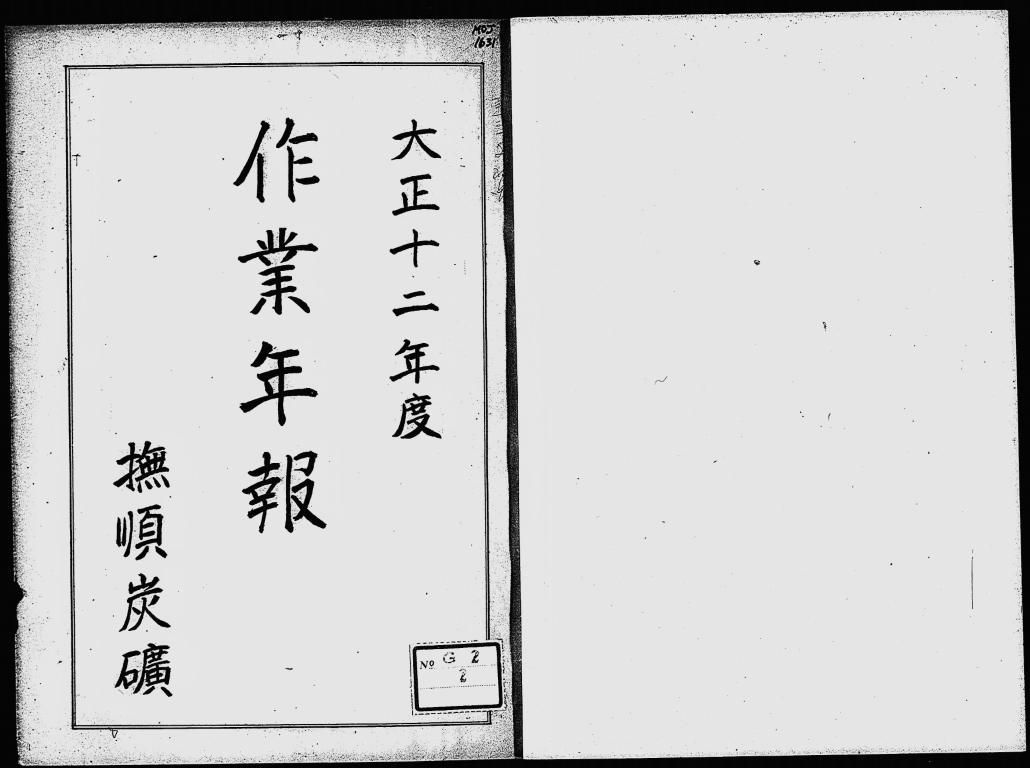 MOJ
1631
大正十二年度
作業年報
撫順炭礦
No G 2
2